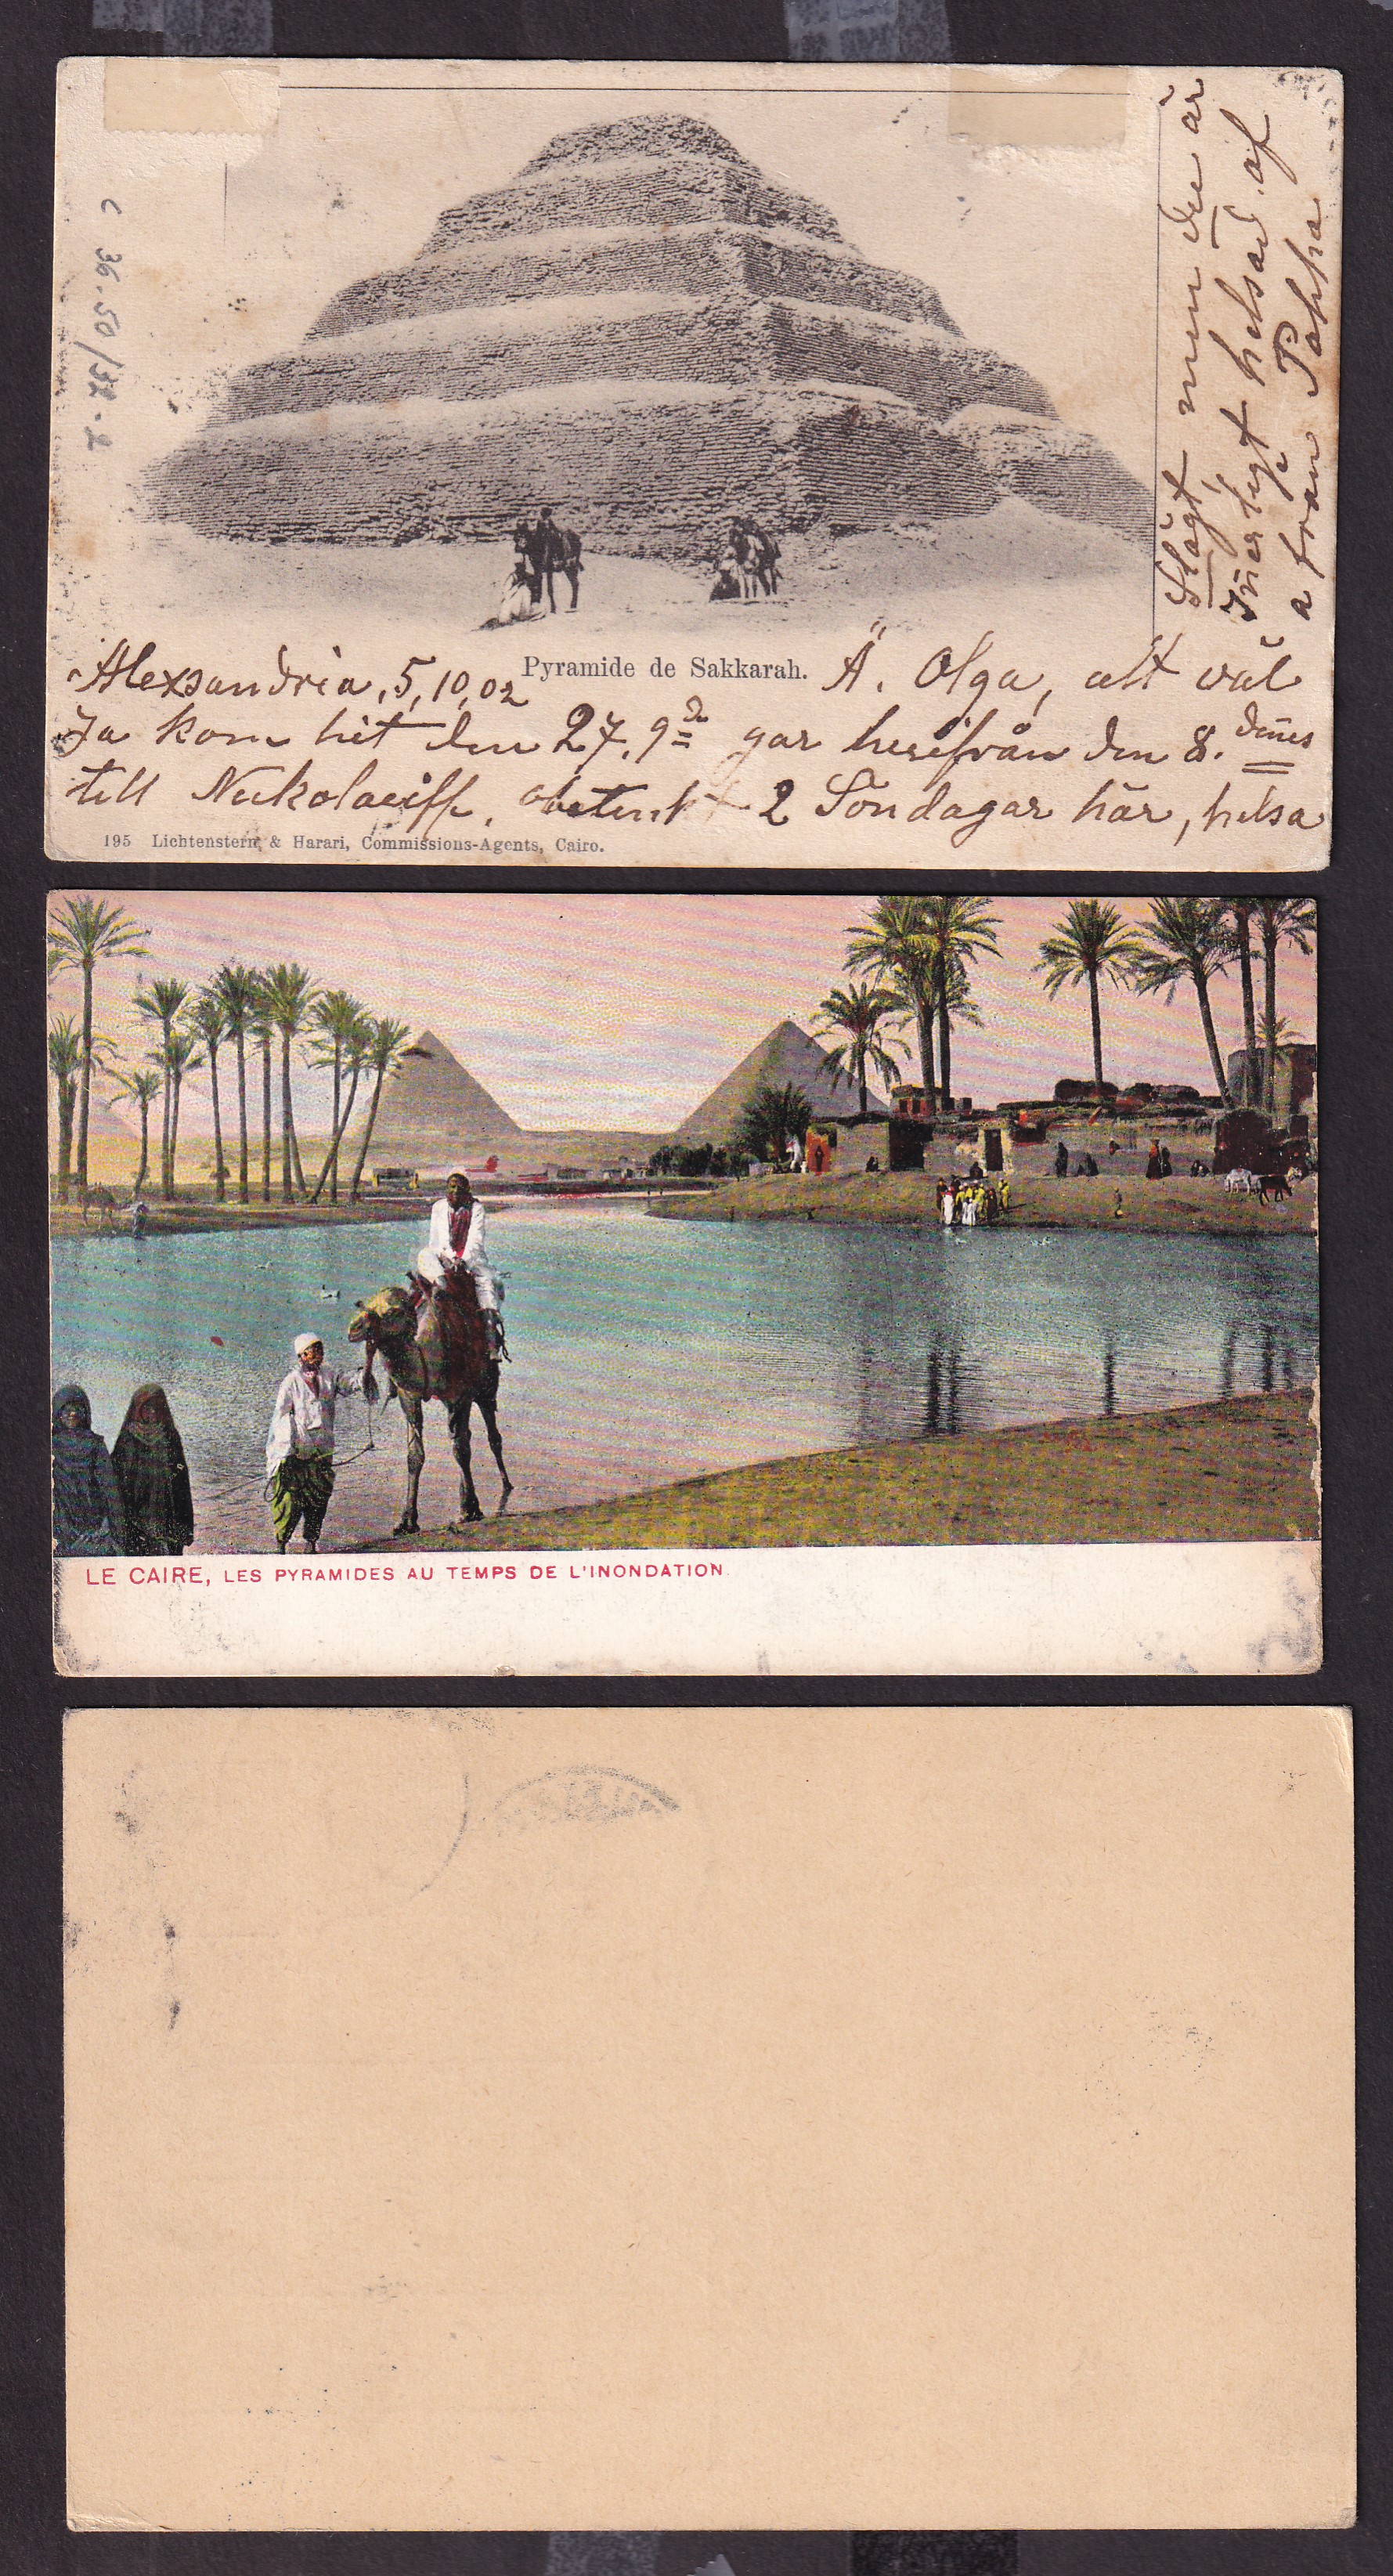 Pyramide de Sakkarah.
Alexsandria, 5, 10, 02 Ä. Olga, allt väl
Ja kom hit den 27, 9 går herifrån den 8. denes
till Nickolaeiff, 2 Söndagar här, helsa
Slägt men du är
Inerligt helsad af
a från Pappa
c 36.50/32-2
195 Lichtenstern & Harari, Commissions-Agents, Cairo.
LE CAIRE, LES PYRAMIDES AU TEMPS DE L'INONDATION.